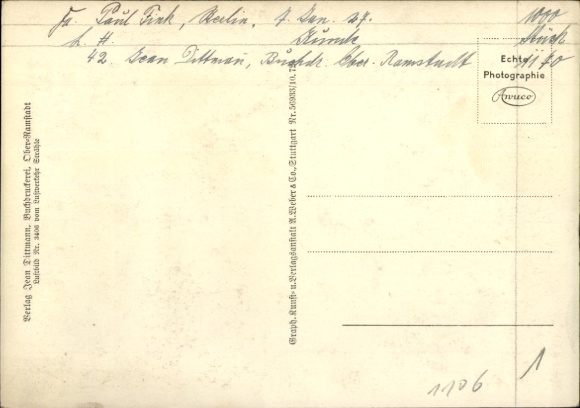 Fa. Paul Fink, Berlin, 7. Jan. 27. 1000
Kunde Stück
b. H.
42. Jean Dittmann, Buchdr. Ober-Ramstadt
Echte
Photographie
Awuco
Verlag Jean Dittmann, Buchdruckerei, Ober-Ramstadt
Luftbild Nr. 3406 vom Luftverkehr Strähle
Graph. Kunst- u. Verlagsanstalt A. Weber & Co., Stuttgart Nr. 56933/10.
1106
1